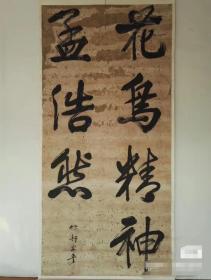 花鸟精神
孟浩然